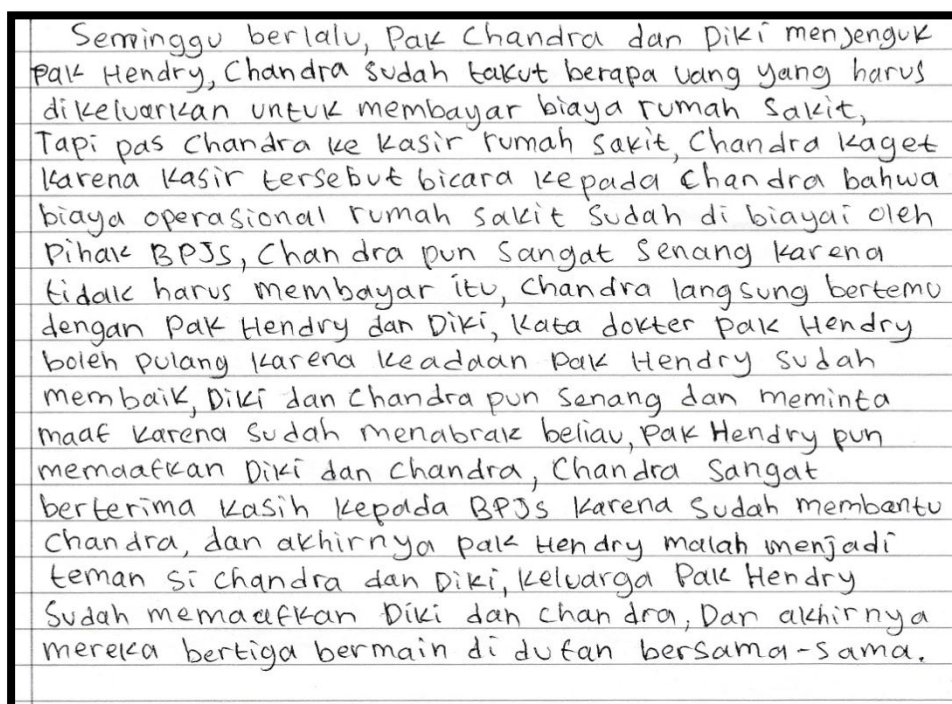 Seminggu berlalu, Pak Chandra dan Diki menjenguk
Pak Hendry, Chandra sudah takut berapa uang yang harus
dikeluarkan untuk membayar biaya rumah sakit,
Tapi pas Chandra ke kasir rumah sakit, Chandra kaget
karena kasir tersebut bicara kepada Chandra bahwa
biaya operasional rumah sakit sudah di biayai oleh
Pihak BPJS, Chandra pun sangat senang karena
tidak harus membayar itu, Chandra langsung bertemu
dengan Pak Hendry dan Diki, kata dokter Pak Hendry
boleh pulang karena keadaan Pak Hendry sudah
membaik, Diki dan Chandra pun senang dan meminta
maaf karena sudah menabrak beliau, Pak Hendry pun
memaafkan Diki dan Chandra, Chandra sangat
berterima kasih kepada BPJS karena sudah membantu
Chandra, dan akhirnya pak Hendry malah menjadi
teman si Chandra dan Diki, keluarga Pak Hendry
sudah memaafkan Diki dan Chandra, Dan akhirnya
mereka bertiga bermain di dufan bersama-sama.